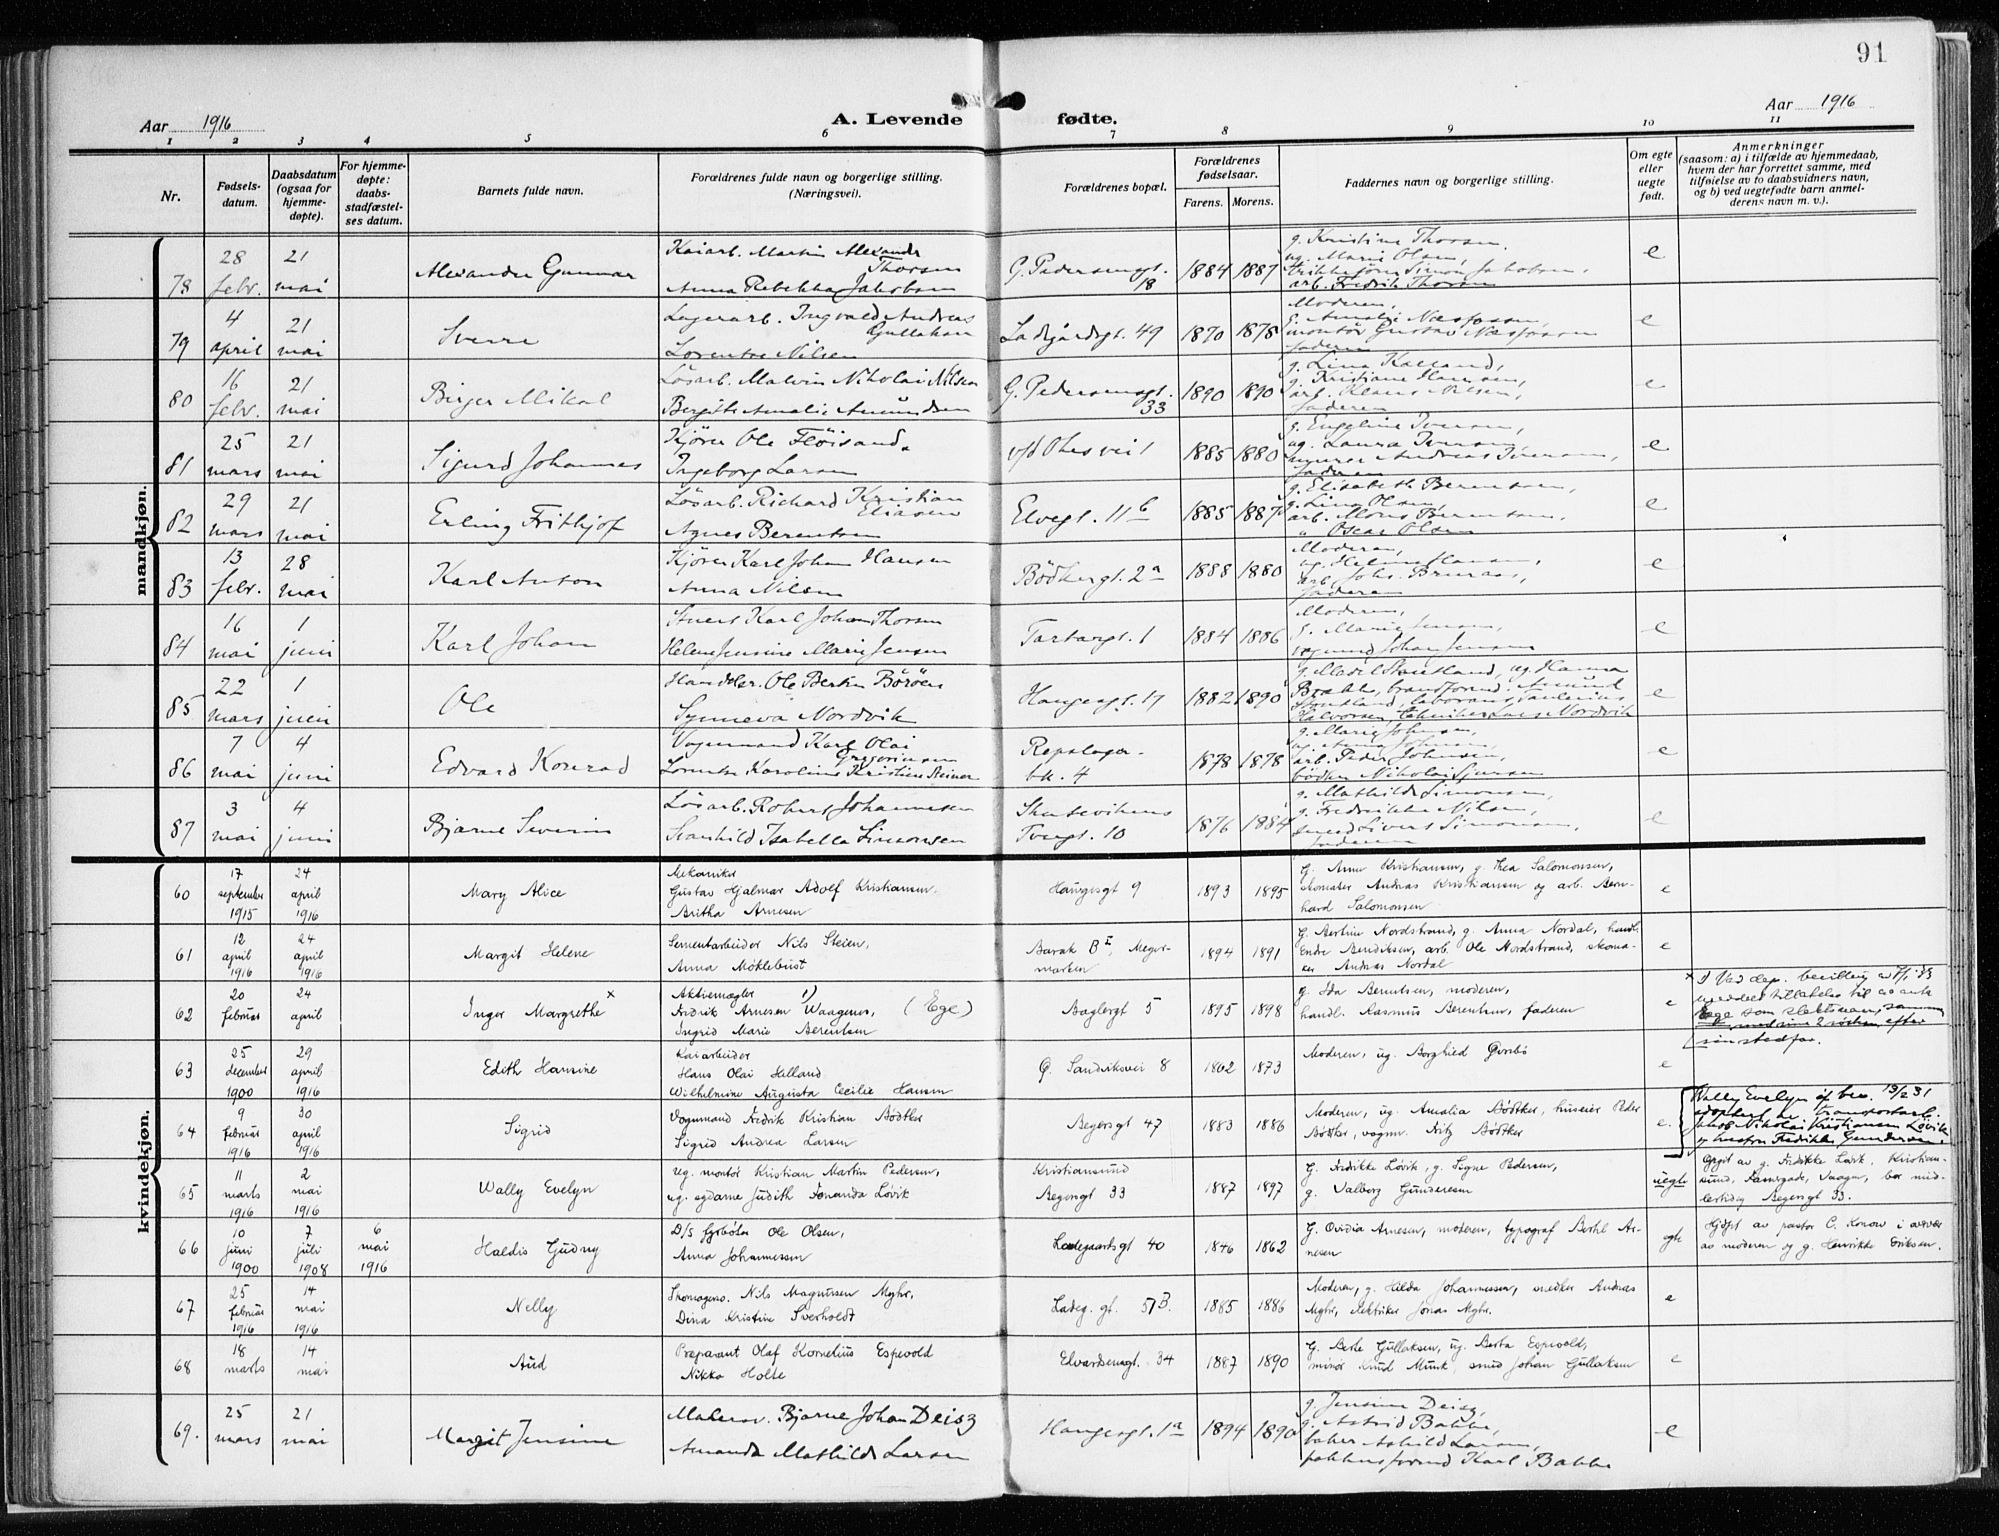 91
Aar 1916
A. Levende fødte.
Aar 1916
1 2 3 4 5 6 7 8 9 10 11
Nr.
Fødsels-
datum.
Daabsdatum
(ogsaa for
hjemme-
døpte).
For hjemme-
døpte:
daabs-
stadfæstel-
ses datum.
Barnets fulde navn.
Forældrenes fulde navn og borgerlige stilling.
(Næringsvei).
Forældrenes bopæl.
Forældrenes
fødselsaar.
Farens. Morens.
Faddernes navn og borgerlige stilling.
Om egte
eller
uegte
født.
Anmerkninger
(saasom: a) i tilfælde av hjemmedaab,
hvem der har forrettet samme, med
tilføielse av to daabsvidners navn,
og b) ved uegtefødte barn anmel-
derens navn m. v.).
mandkjøn.
78
28
febr.
21
mai
Alexander Gunnar
Kaiarb. Martin Alexander
Thorsen
Anna Rebekka Jakobsen
G. Pedersensgt.
18
1884 1887
g. Kristine Thorsen,
ug. Marie Olsen,
Simon Jakobsen,
arb. Fredrik Thorsen
e
79
4
april
21
mai
Sverre
Lagerarb. Ingvald Andreas
Gullaksen
Lorentse Nilsen
Ladegårdsgt. 49
1870 1878
Moderen,
g. Amalie Næsfossen,
montør Gustav Næsfossen
faderen
e
80
16
febr.
21
mai
Birger Mikal
Løsarb. Malvin Nikolai Nilsen
Bergitte Amalie Amundsen
G. Pedersensgt.
33
1890 1890
g. Lina Kalland,
g. Kristiane Hansen,
arb. Klaus Nilsen,
faderen
e
81
25
mars
21
mai
Sigurd Johannes
Kjører Ole Fløisand,
Ingeborg Larsen
v/d Ohsvei 1
1885 1880
g. Engeline Iversen,
ug. Laura Iversen,
murer Andreas Iversen,
faderen
e
82
29
mars
21
mai
Erling Frithjof
Løsarb. Richard Kristian
Eliasen
Agnes Berentsen
Elvegt. 11 b
1885 1887
g. Elisabeth Berentsen,
g. Lina Olsen,
arb. Mons Berentsen,
" Oscar Olsen
e
83
13
febr.
28
mai
Karl Anton
Kjører Karl Johan Hansen
Anna Nilsen
Bødkergt. 2 a
1888 1880
Moderen,
ug. Helene Hansen,
arb. Johs. Bruraas,
faderen
e
84
16
mai
1
juni
Karl Johan
Stuert Karl Johan Thorsen
Helene Jensine Marie Jensen
Tartargt. 1
1884 1886
Moderen,
g. Marie Jensen,
vognmand Johan Jensen
e
85
22
mars
1
juni
Ole
Handelsr. Ole Berten Børøen
Synneva Nordvik
Haugesgt. 17
1882 1890
g. Madel Stautland, ug. Hanna
Brække, brandformd. Amund
Stautland, laborant
Halvorsen, tekniker Lars Nordvik
e
86
7
mai
4
juni
Edvard Konrad
Vognmand Karl Olai
Gregoriussen
Lorentse Karoline Kristine Steiner
Repslager-
bk. 4
1878 1878
g. Marie Johnsen,
ug. Anna Johnsen,
arb. Peder Johnsen,
bødker Nikolai Sjursen
e
87
3
mai
4
juni
Bjarne Severin
Løsarb. Robert Johannesen
Svanhild Isabella Simonsen
Skuteviksens
Tvergt. 10
1876 1884
g. Mathilde Simonsen,
g. Fredrikke Nilsen,
smed Sivert Simonsen,
faderen
e
kvindekjøn.
60
17
september
1915
24
april
1916
Mary Alice
Mekaniker
Gustav Hjalmar Adolf Kristiansen,
Britha Arnesen
Haugesgt 9
1893 1895
G. Anne Kristiansen, g. Thea Salomonsen,
skomaker Andreas Kristiansen og arb. Bern-
hard Salomonsen
e
61
12
april
1916
24
april
1916
Margit Helene
Sementarbeider Nils Steien,
Anna Møklebust
Barak B II, Møger-
marken
1894 1891
G. Bertine Nordstrand, g. Anna Nordal, handl.
Endre Bendiksen, arb. Ole Nordstrand, skoma-
ker Andreas Nordal
e
62
20
februar
24
april
Inger Margrethe x
Aktiemægler 1)
Fredrik Arnesen Waagenes, (Ege)
Ingrid Marie Berentsen
Baglergt 5
1895 1898
g. Ida Berentsen, moderen,
handl. Rasmus Berentsen, faderen
e
x 1) Ved dep. bevilling
meddelt tillatelse til at anta
Ege som slektsnavn, sammen
med sine 2 søsken, efter
sin stedfar.
63
25
december
1900
29
april
1916
Edith Hansine
Kaiarbeider
Hans Olai Helland
Wilhelmine Augusta Cecilie Hansen
Ø. Sandviksvei 8
1862 1873
Moderen, ug. Borghild
e
64
9
februar
1916
30
april
1916
Sigrid
Vognmand Fredrik Kristian Bødtker
Sigrid Andrea Larsen
Begersgt 47
1883 1886
Moderen, ug. Amalia Bødtker, huseier Peder
Bødtker, vognm. Fritz Bødtker
e.
Wally Evelyn if. bev. 13/2 31
adoptert av transportarb.
Jakob Nikolai Kristiansen Løvik
og hustru Fredrikke Gundersen.
65
11
marts
1916
2
mai
1916
Wally Evelyn
ug. montør Kristian Martin Pedersen,
ug. sydame Judith Fernanda Løvik
Kristiansund
Begersgt 33
1887 1897
G. Fredrikke Løvik, g. Signe Pedersen,
g. Valborg Gundersen
uegte
Opgit av g. Fredrikke Løvik, Kristian-
sund, Vaagen, bor mid-
lertidig Begersgt 33.
66
10
juni
1900
7
juli
1908
6
mai
1916
Haldis Gudny
D/s fyrbøter Ole Olsen,
Anna Johannessen
Ladegaardsgt 40
1846 1862
G. Ovidia Arnesen, moderen, typograf Bertel Ar-
nesen
egte
Hjdpt av pastor C. Konow i nærvær
av moderen og g. Henrikke Eriksen.
67
25
februar
1916
14
mai
1916
Nelly
Nils Magnussen Myhr,
Dina Kristine Sverholdt
Ladeg. gt. 51 B.
1885 1886
Moderen, g. Hilda Johannessen, snedker Andreas
Myhr, elektriker Jonas Myhr.
e
68
18
marts
14
mai
Aud
Preparant Olaf Kornelius Espevold
Nikka Holte
Edvardsensgt 34
1887 1890
G. Berte Gullaksen, ug. Berta Espevold,
minør Knud Munk, smed Johan Gullaksen
e
69.
25
mars
21
mai
Margit Jensine
Malersv. Bjarne Johan Deisz
Amanda Mathilde Larsen
Haugesgt. 1 a
1894 1890
g. Jensine Deisz,
g. Astrid Bakke,
baker Larsen,
pakhusformd Karl Bakke
e